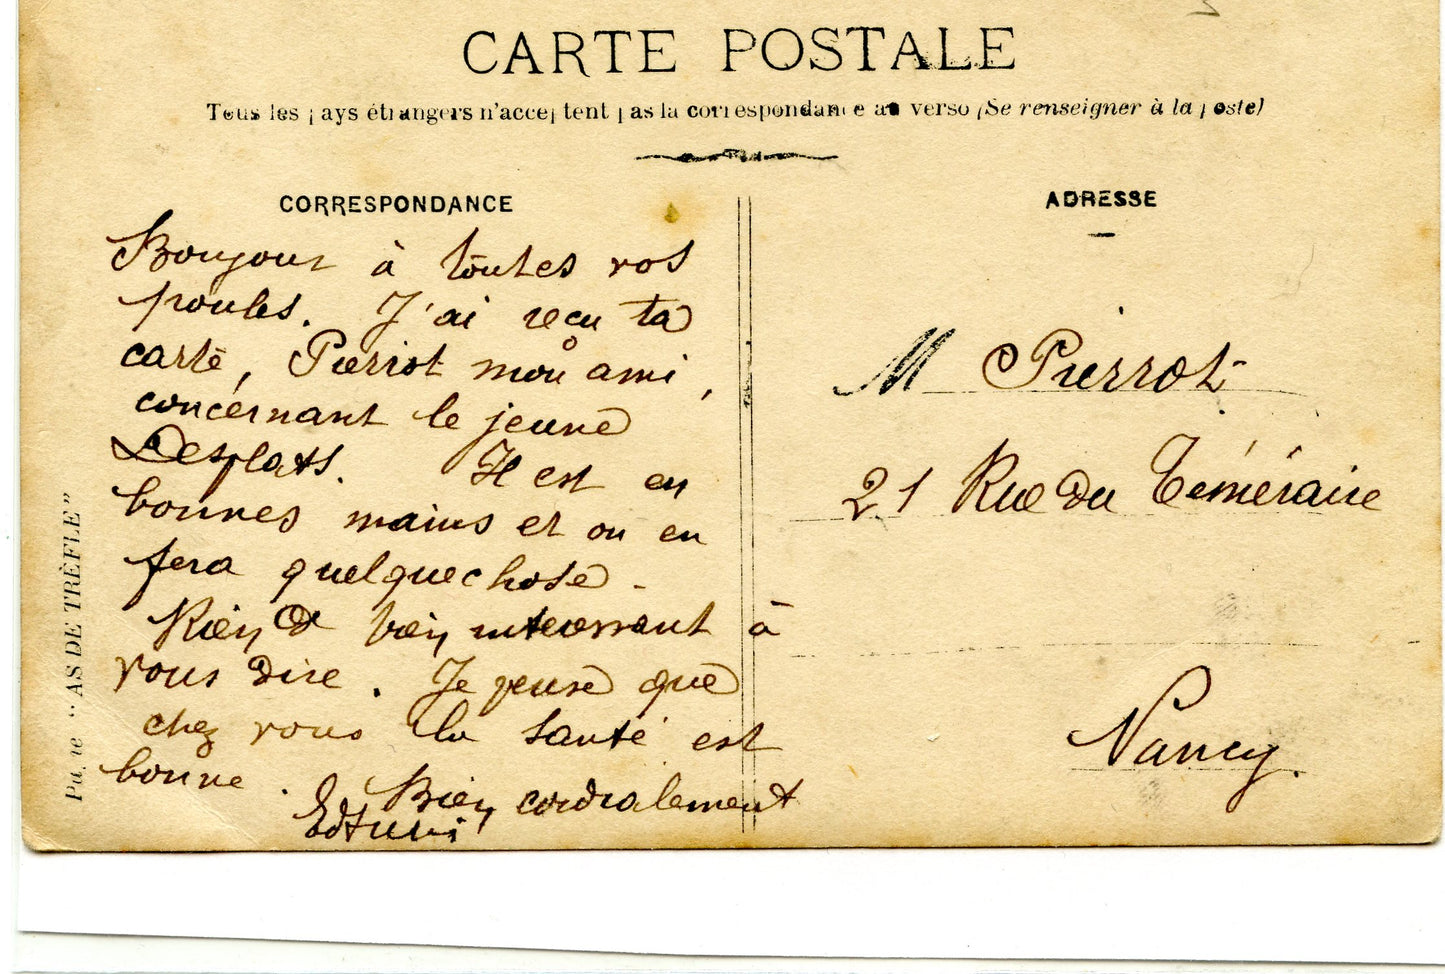 CARTE POSTALE
Tous les pays étrangers n'acceptent pas la correspondance au verso (Se renseigner à la poste)
CORRESPONDANCE
Bonjour à toutes vos
poules. J'ai reçu ta
carte, Pierrot mon ami,
concernant le jeune
Desplats. Il est en
bonnes mains et on en
fera quelque chose.
Rien de bien intéressant à
vous dire. Je pense que
chez vous la santé est
bonne. Bien cordialement
ADRESSE
M Pierrot
21 Rue du Téméraire
Nancy.
"AS DE TRÈFLE"